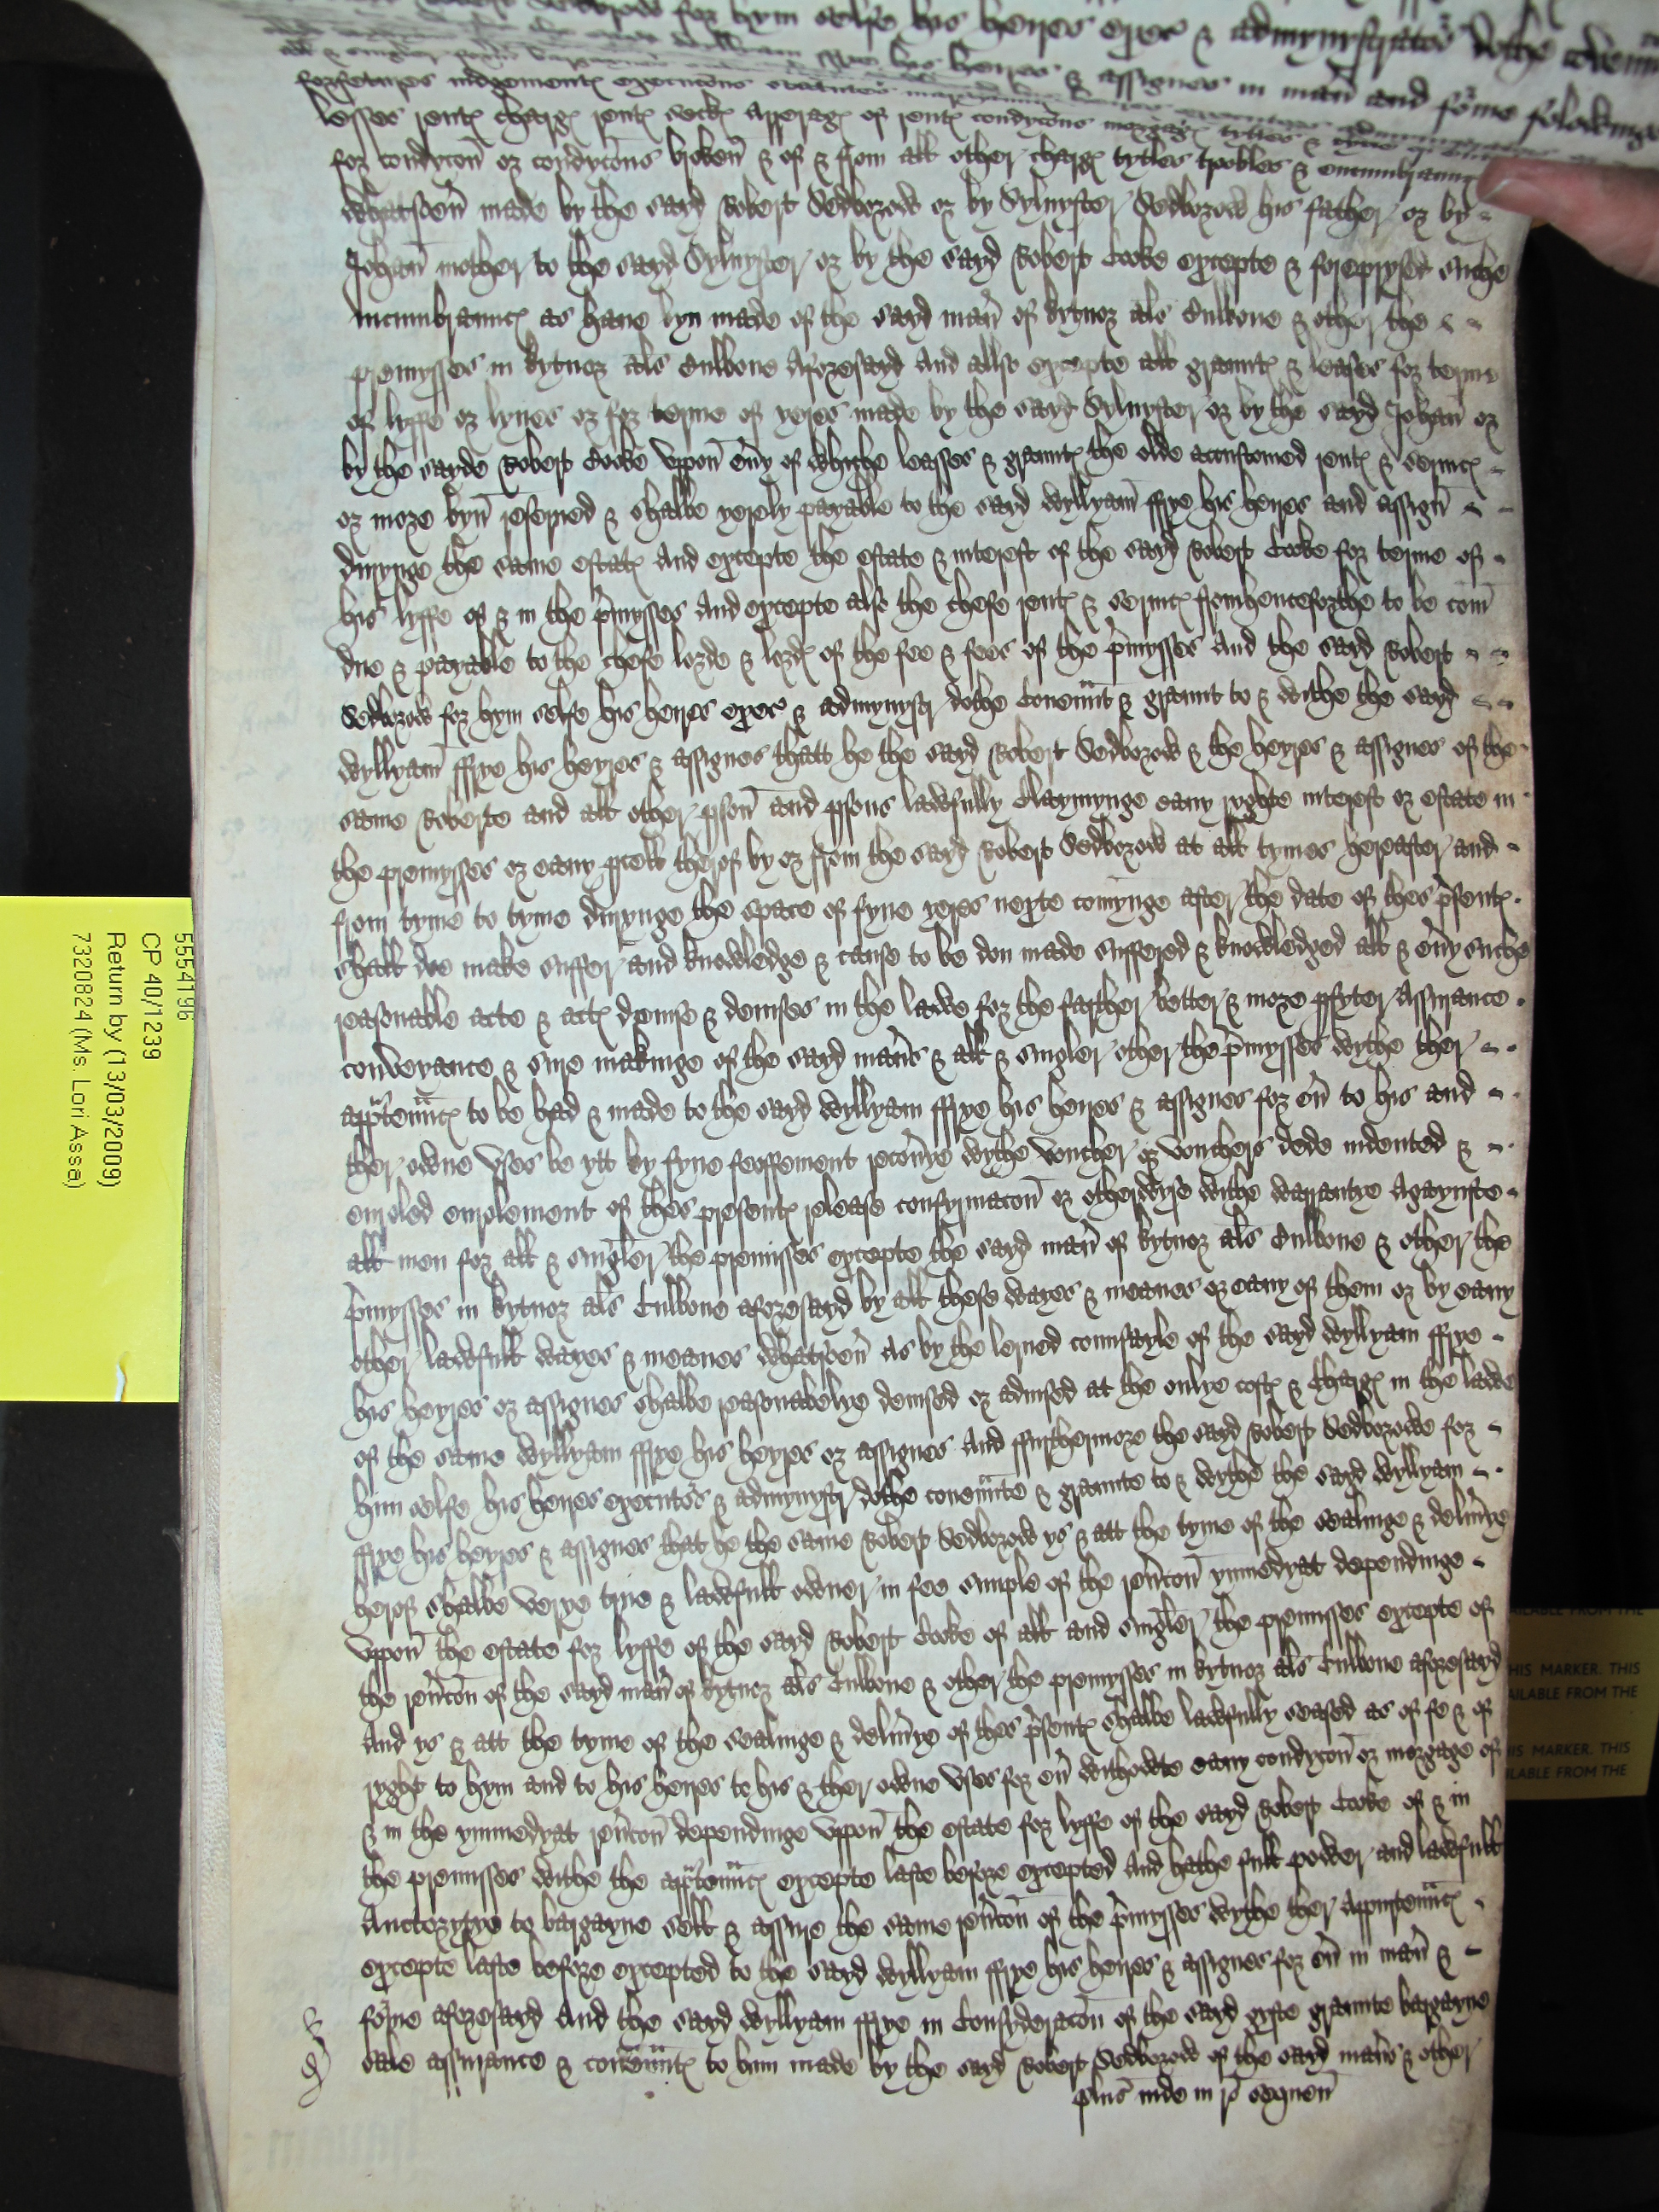 hym selfe his heires exec & admynystrators dothe
his heires & assignes in man̄ and fōme folowinge
forfetures iudgementꝭ execucōns statutes
lesses rentꝭ chargꝭ rentꝭ seckꝭ arreragꝭ of rentꝭ condycōns
for condycōn or condycōns broken & of & from all other chargꝭ tytles trobles & encumbrauncꝭ
whatsoeū made by the sayd Robert Sedborow or by Sylvyster Sedborow his father or by
Johan̄ mother to the sayd Sylvyster or by the sayd Robert Cooke excepte & foreprysed suche
incumbrauncꝭ as haue byn made of the sayd man̄ of kytnor als Culbone & other the
premysses in kytnor als Culbone Aforesayd And allso excepte all grauntꝭ & leases for terme
of lyffe or lyves or for terme of yeres made by the sayd Sylvyster or by the sayd Johan̄ or
by the sayde Robert Cooke vppon eūy of whiche leasses & grauntꝭ the olde accustomed rentꝭ & servicꝭ
or more byn̄ reserved & shalbe yerely payable to the sayd Wyllyam̄ ffrye his heires and assign̄
duringe the same estatꝭ And excepte the estate & interest of the sayd Robert Cooke for terme of
his lyffe of & in the p̄mysses And excepte also the chefe rentꝭ & servicꝭ fromhenceforthe to be com̄
due & payable to the chefe lorde & lordꝭ of the fee & fees of the p̄mysses And the sayd Robert
Sedborow for hym selfe his heires exec & admynystr dothe Covenn̄t & graunt to & withe the sayd
Wyllyam̄ ffrye his heyres & assignes thatt he the sayd Robert Sedborow & the heyres & assignes of the
same Roberte and all other p̱son̄ and p̱sons lawfully Claymynge eany ryghte interest or estate in
the premysses or eany p̱cell therof by or from the sayd Robert Sedborow at all tymes hereafter and
from tyme to tyme duringe the space of fyve yeres nexte comynge after the date of thes p̄sentꝭ
shall doe make suffer and knowledge & cause to be don made suffered & knowledged all & eūy suche
reasonable acte & actꝭ devise & devises in the lawe for the farther better & more p̱fyter Assurance
conveyance & sure makinge of the sayd man̄s & all & singler other the p̄mysses wythe ther
app̱tenn̄cꝭ to be had & made to the sayd Wyllyam ffrye his heires & assignes for eū to his and
ther owne vses be ytt by fyne feoffement recoūye wythe voucher or vouchers dede indented &
enroled enrolement of thes presentꝭ release confyrmacōn or otherwyse withe warrantye Agaynste
all men for all & singler the premisses excepte the sayd man̄ of kytnor als Culbone & other the
p̄mysses in kytnor als Culbone aforesayd by all these wayes & meanes or eany of them or by eany
other lawfull wayes & meanes whatsoeū As by the lerned counsayle of the sayd Wyllyam ffrye
his heyres or assignes shalbe reasonabelye devised or advised at the onlye costꝭ & Chargꝭ in the lawe
of the same Wyllyam ffrye his heyres or assignes And ffurthermore the sayd Robert Sedborowe for
him selfe his heires executors & admynystr dothe covenn̄te & graunte to & wythe the sayd Wyllyam
ffrye his heyres & assignes that he the same Robert Sedborow ys & att the tyme of the sealinge & deliūye
herof shalbe verye true & lawfull owner in fee simple of the reūcōn ymmedyat dependinge
vppon̄ the estate for lyffe of the sayd Robert Cooke of all and singler the premisses excepte of
the reūcōn of the sayd man̄ of kytnor als Culbone & other the premysses in kytnor als Culbone aforesayd
And ys & att the tyme of the sealinge & deliūye of thes p̄sentꝭ shalbe lawfully seased as of fe & of
ryght to hym and to his heires to his & ther owne vses for eū withowte eany condycōn or morgage of
& in the ymmedyat reūcōn dependinge vppon̄ the estate for lyffe of the sayd Robert Cooke of & in
the premisses withe the app̱tenn̄cꝭ excepte laste before excepted And hathe full power and lawfull
Auctorytye to bargayne sell & assure the same reūcōn of the p̄mysses wythe ther Appurtenn̄cꝭ
excepte laste before excepted to the sayd Wyllyam ffrye his heires & assignes for eū in man̄ &
fōme aforesayd And the sayd Wyllyam ffrye in Consyderacōn of the sayd gyfte graunte bargayne
sale assurance & covenn̄tꝭ to him made by the sayd Robert Sedborow of the sayd man̄s & other
plus inde in ro sequen̄
5554196
CP 40/1239
Return by (13/03/2009)
7320824 (Ms. Lori Asse)
AILABLE FROM THE
HIS MARKER. THIS
AILABLE FROM THE
HIS MARKER. THIS
ILABLE FROM THE